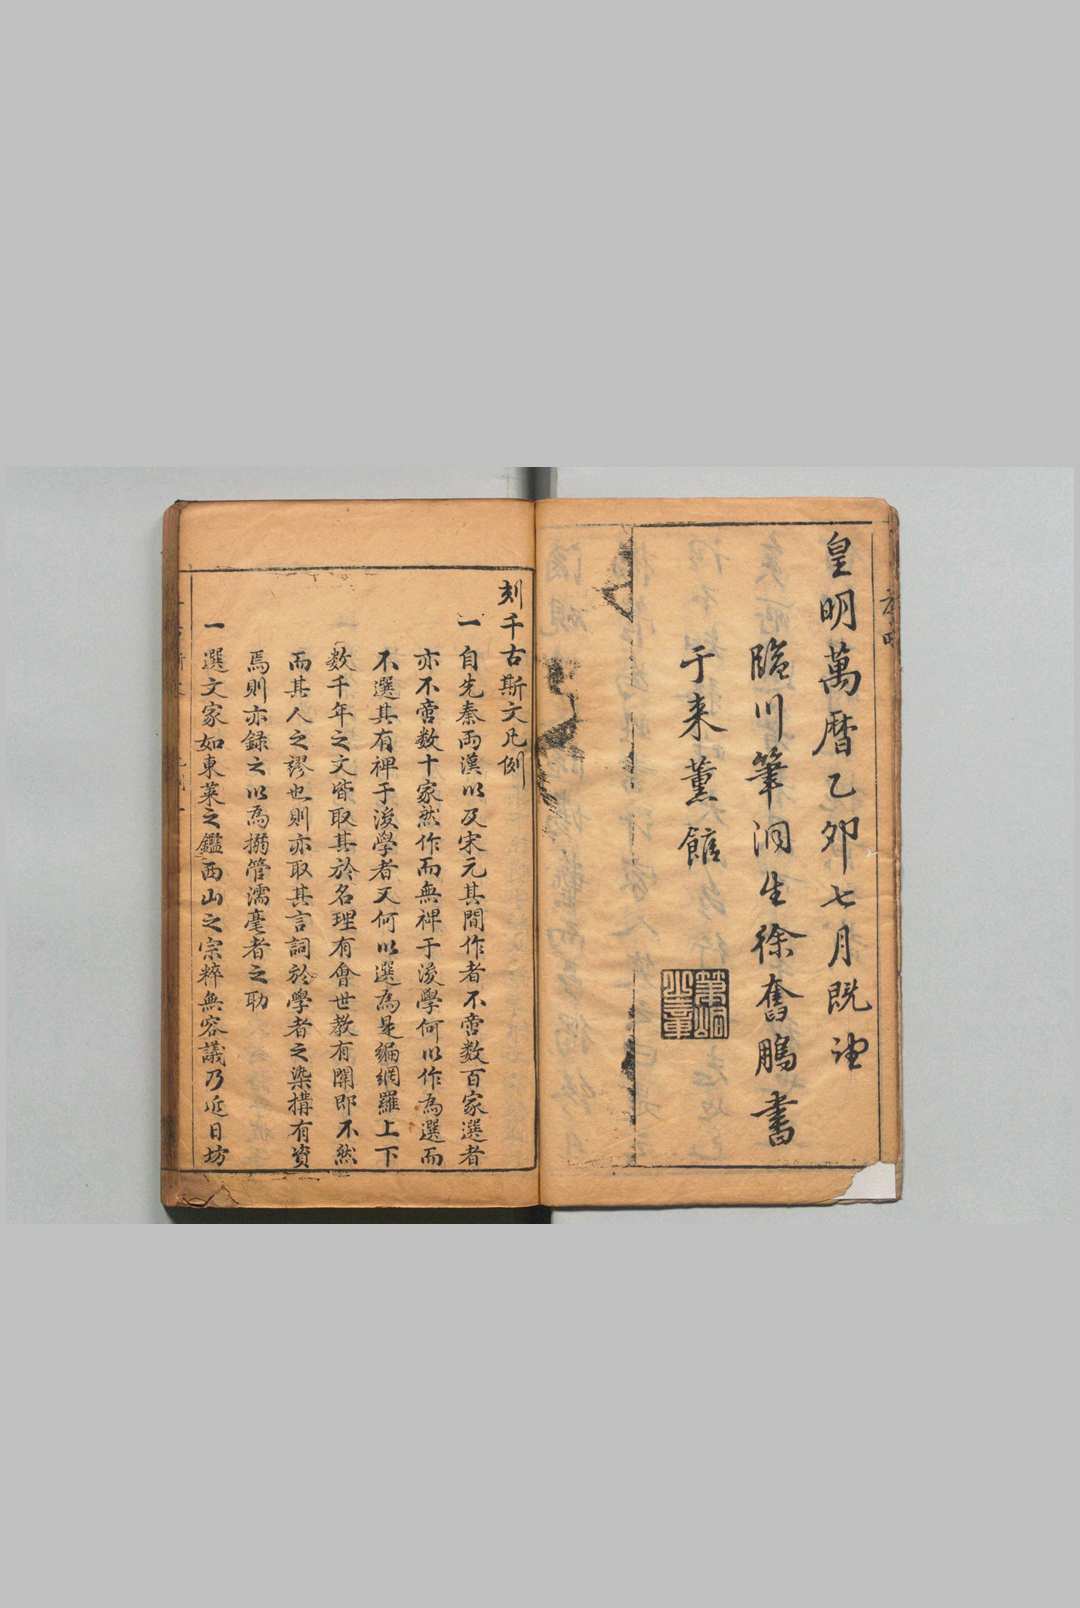 皇明萬曆乙卯七月既望
臨川筆洞生徐奮鵬書
于来薰館
筆峒
山章
刻千古斯文凡例
一自先秦両漢以及宋元其間作者不啻数百家選者
亦不啻数十家然作而無裨于後學何以作為選而
不選其有裨于後學者又何以選為是編網羅上下
数千年之文皆取其於名理有會世教有関即不然
而其人之謬也則亦取其言詞於學者之染搆有資
焉則亦録之以為搦管濡毫者之助
一選文家如東萊之鑑西山之宗粹無容議乃近日坊